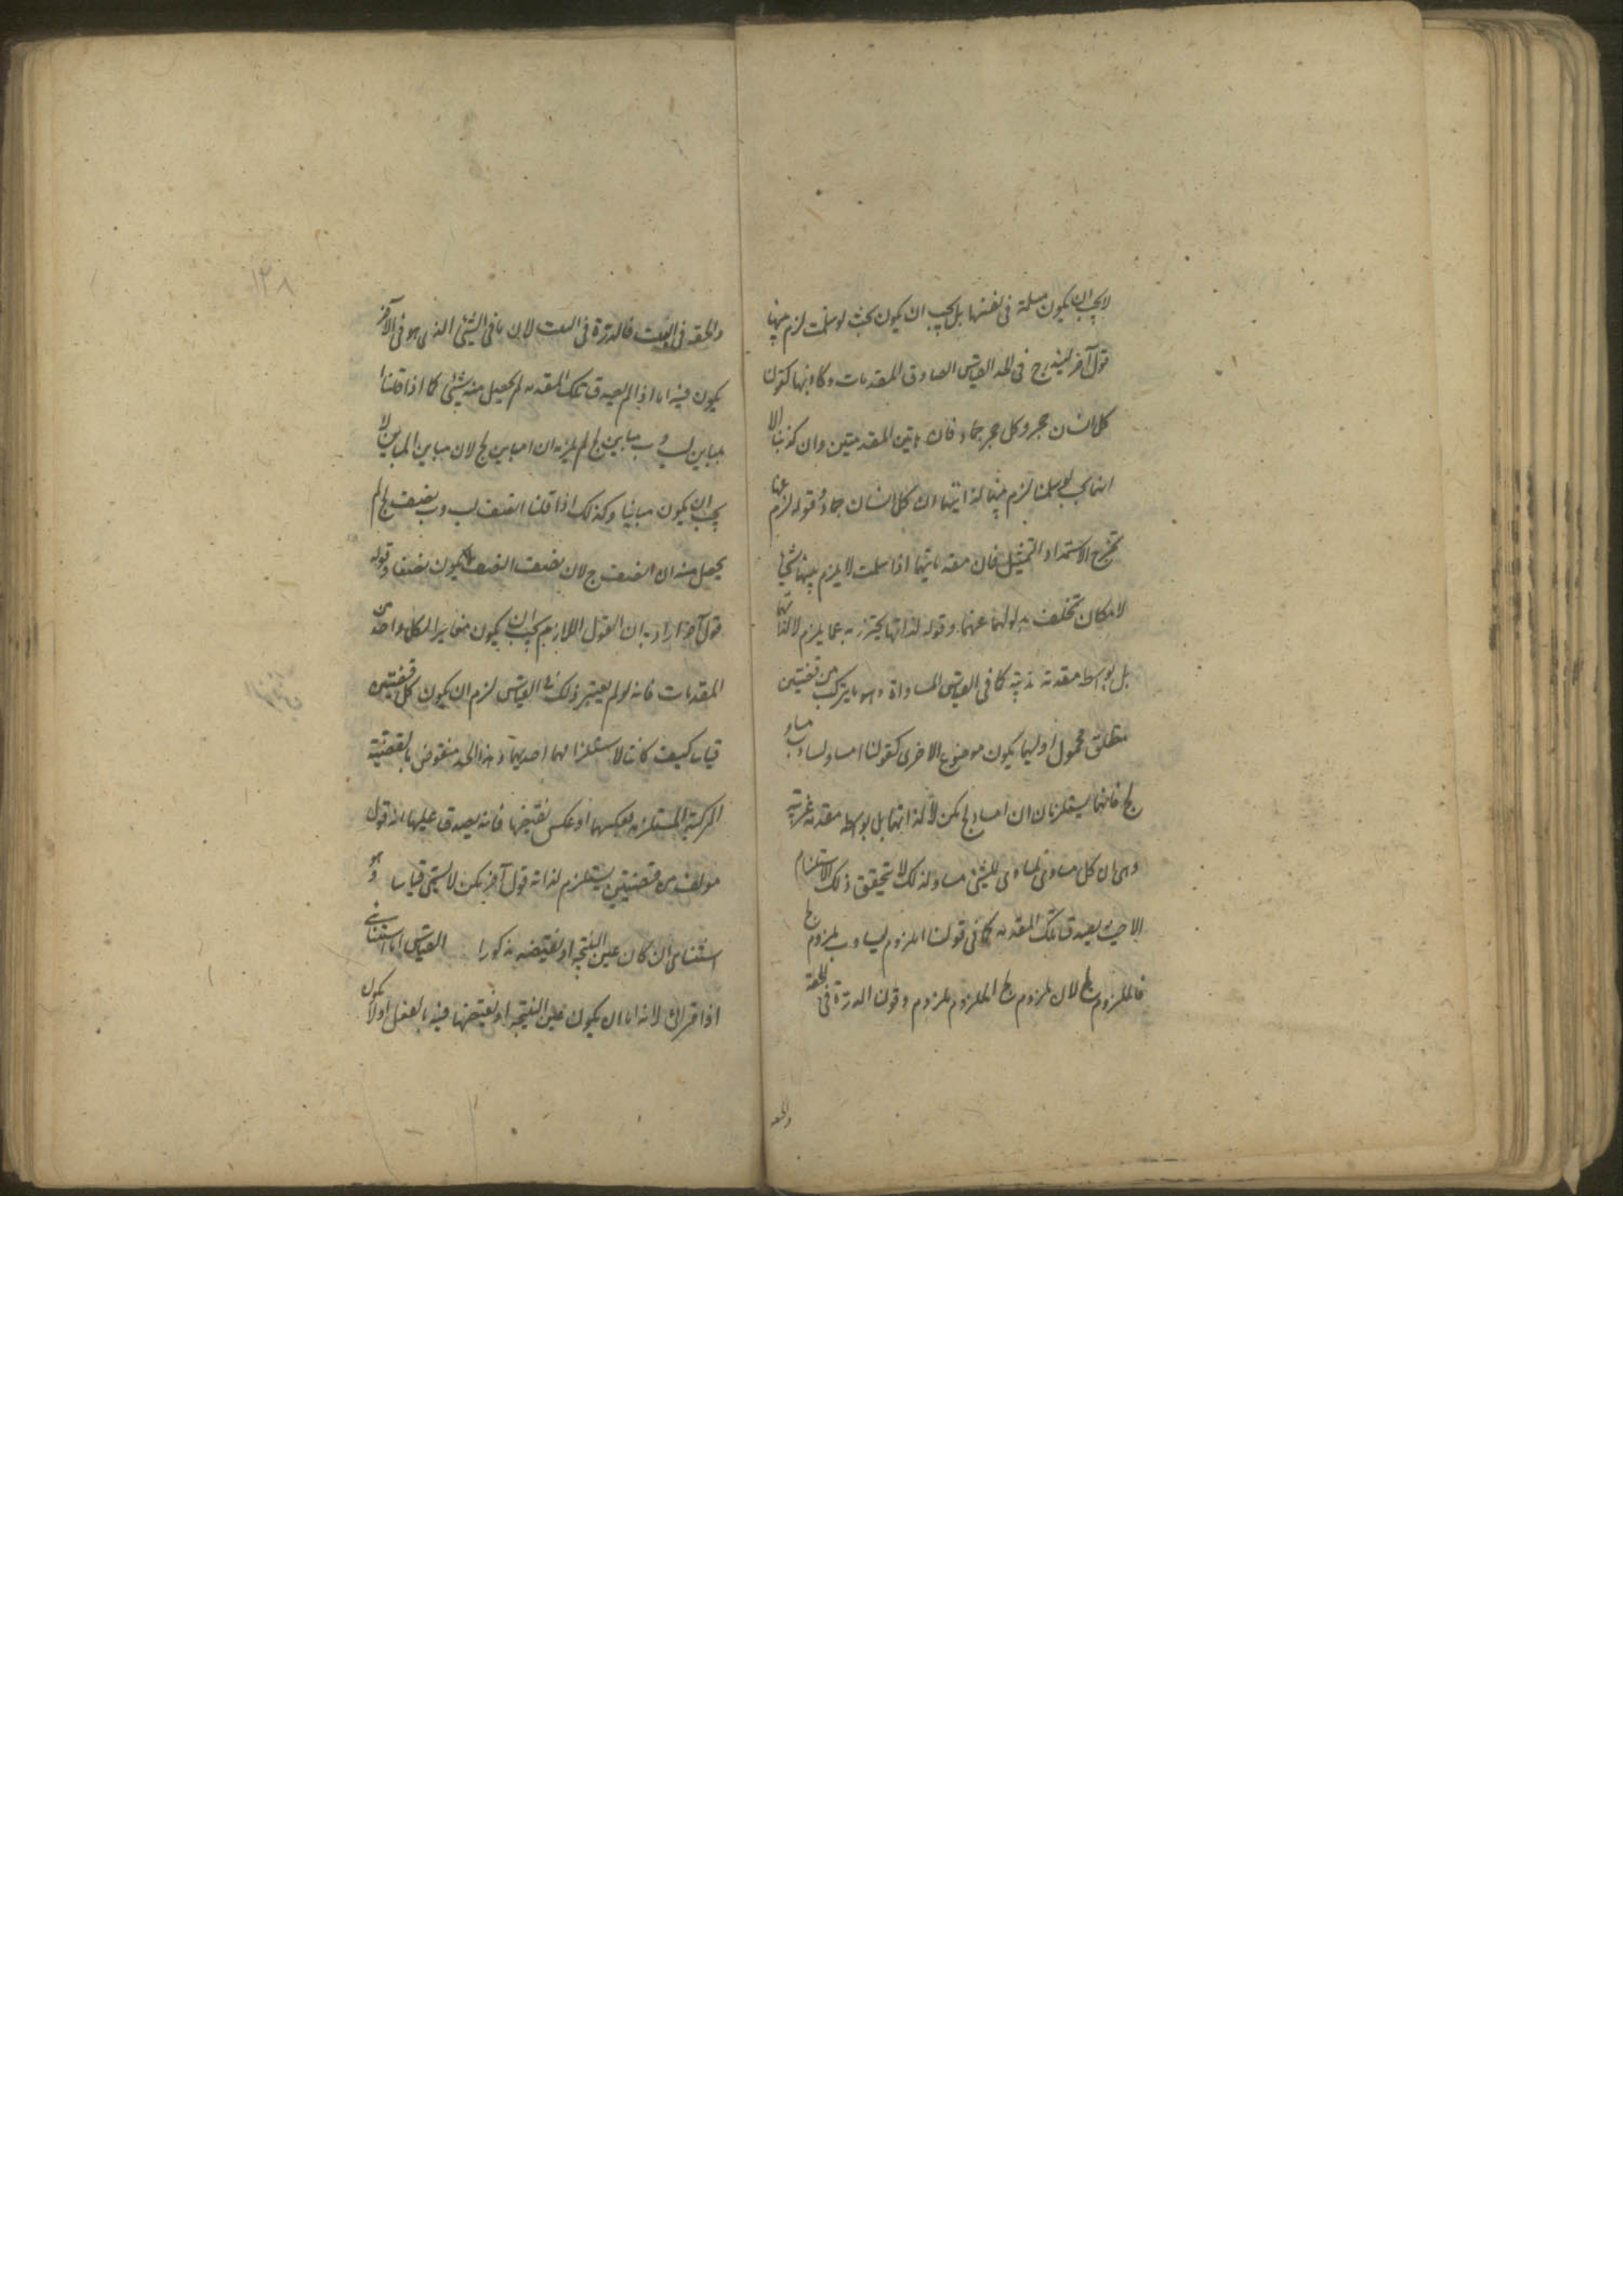 لا يجب ان يكون مسلمة فى نفسها بل يجب ان يكون بحيث لو سلمت لزم منها
قول آخر ليندرج فى الحد القياس الصادق المقدمات وكاذبها كقولنا
كل انسان حجر وكل حجر جماد فان هاتين المقدمتين وان كذبتا الا
انهما بحيث لو سلمتا لزم عنهما لذاتيهما ان كل انسان جماد وقوله لزم عنها
يخرج الاستقراء والتمثيل فان مقدماتهما اذا سلمت لا يلزم منها شئ
لامكان تخلف مدلولهما عنهما وقوله لذاتها يحترز به عما يلزم لا لذاتها
بل بواسطة مقدمة غريبة كما فى القياس المساواة وهو ما يتركب من قضيتين
متعلق محمول اوليهما يكون موضوع الاخرى كقولنا ا مساو لب وب مساو
لج فانهما يستلزمان ان ا مساو لج لكن لا لذاتهما بل بواسطة مقدمة غريبة
وهى ان كل مساوى لمساوى للشئ مساو له ولذلك لا يتحقق ذلك الاستلزام
الا حيث يصدق تلك المقدمة كما فى قولنا ا ملزوم لب وب ملزوم لج
فا ملزوم لج لان ملزوم الملزوم ملزوم وقولنا الدرة فى الحقة
والحقة
١٣٨
والحقة فى البيت فالدرة فى البيت لان ما فى الشئ الذى هو فى الآخر
يكون فيه اما اذا لم يصدق تلك المقدمة لم يحصل منه شئ كما اذا قلنا ا
مباين لب وب مباين لج لم يلزمه ان ا مباين لج لان مباين المباين لا
يجب ان يكون مباينا وكذلك اذا قلنا ا نصف لب وب نصف لج لم
يحصل منه ان ا نصف ج لان نصف النصف لا يكون نصفا وقوله
قول آخر اراد به ان القول اللازم يجب ان يكون مغايرا لكل واحد من
المقدمات فانه لو لم يعتبر ذلك فى القياس لزم ان يكون كل قضيتين
قياسا كيف كانتا لاستلزامهما احديهما وهذا الحد منقوض بالقضية
المركبة المستلزمة لعكسها او عكس نقيضها فانه يصدق عليها انه قول
مؤلف من قضيتين يستلزم لذاته قول آخر لكن لا يسمى قياسا وهو
استثنائى ان كان عين النتيجة او نقيضه مذكورا القياس اما استثنائى
او اقترانى لانه اما ان يكون عين النتيجة او نقيضها فيه بالفعل او لا يكون